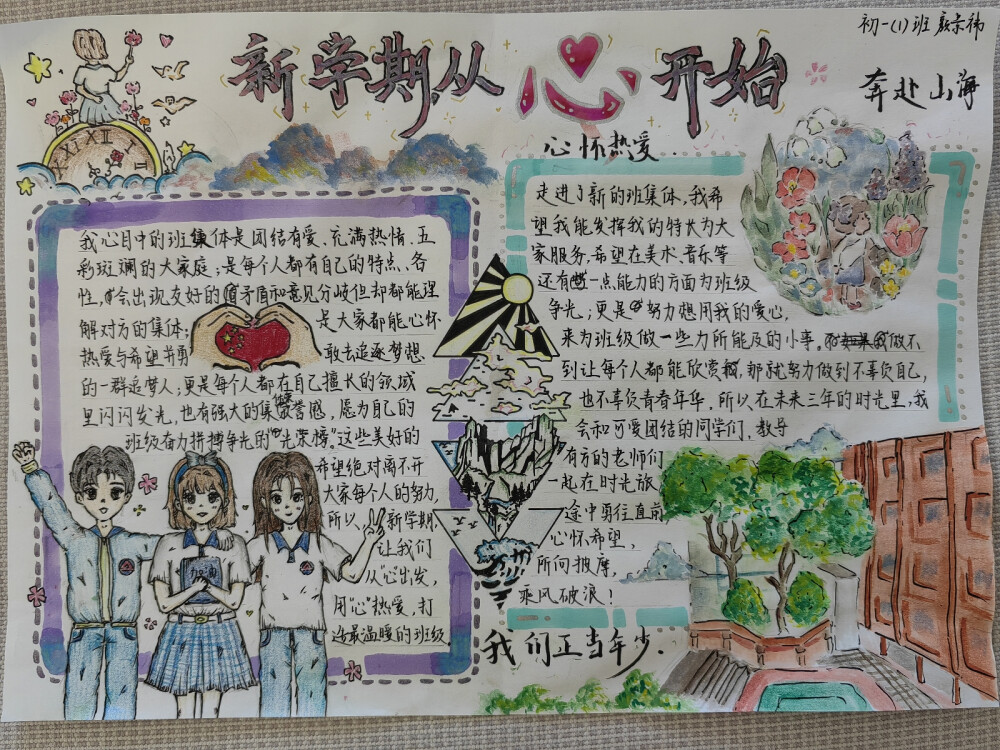 初一(1)班
新学期从心开始
奔赴山海
心怀热爱
我心目中的班集体是团结有爱、充满热情、五
彩斑斓的大家庭;是每个人都有自己的特点、各
性,会出现友好的矛盾和意见分歧但却都能理
解对方的集体; 是大家都能心怀
热爱与希望并勇 敢去追逐梦想
的一群追梦人;更是每个人都在自己擅长的领域
里闪闪发光,也有强大的集体荣誉感,愿为自己的
班级奋力拼搏争光的“光荣榜”这些美好的
希望绝对离不开
大家每个人的努力,
所以, 新学期
让我们
从“心”出发,
用“心”热爱,打
造最温暖的班级
加油
走进了新的班集体,我希
望我能发挥我的特长为大
家服务,希望在美术、音乐等
还有一点能力的方面为班级
争光;更是努力想用我的爱心,
来为班级做一些力所能及的小事。做不
到让每个人都能欣赏我,那就努力做到不辜负自己,
也不辜负青春年华。所以在未来三年的时光里,我
会和可爱团结的同学们,教导
有方的老师们
一起在时光旅
途中勇往直前
心怀希望,
所向披靡,
乘风破浪!
我们正当年少.